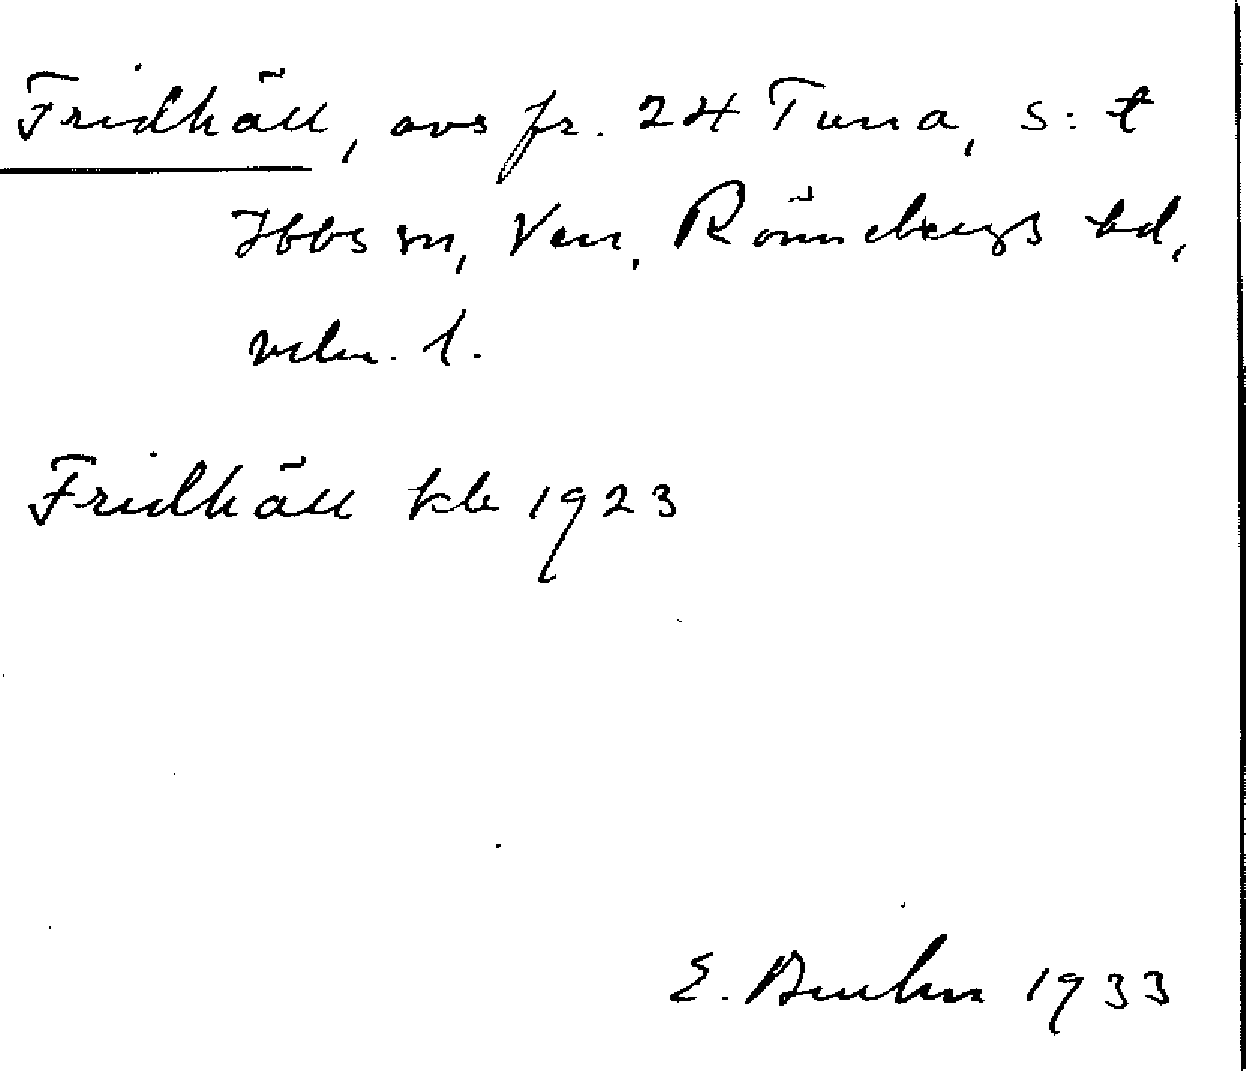 Fridhäll, avs fr. 24 Tuna, S:t
Ibbs sn, Ven, Rönnebergs hd,
Mlm. l.
Fridhäll kb 1923
E. Bruhn 1933